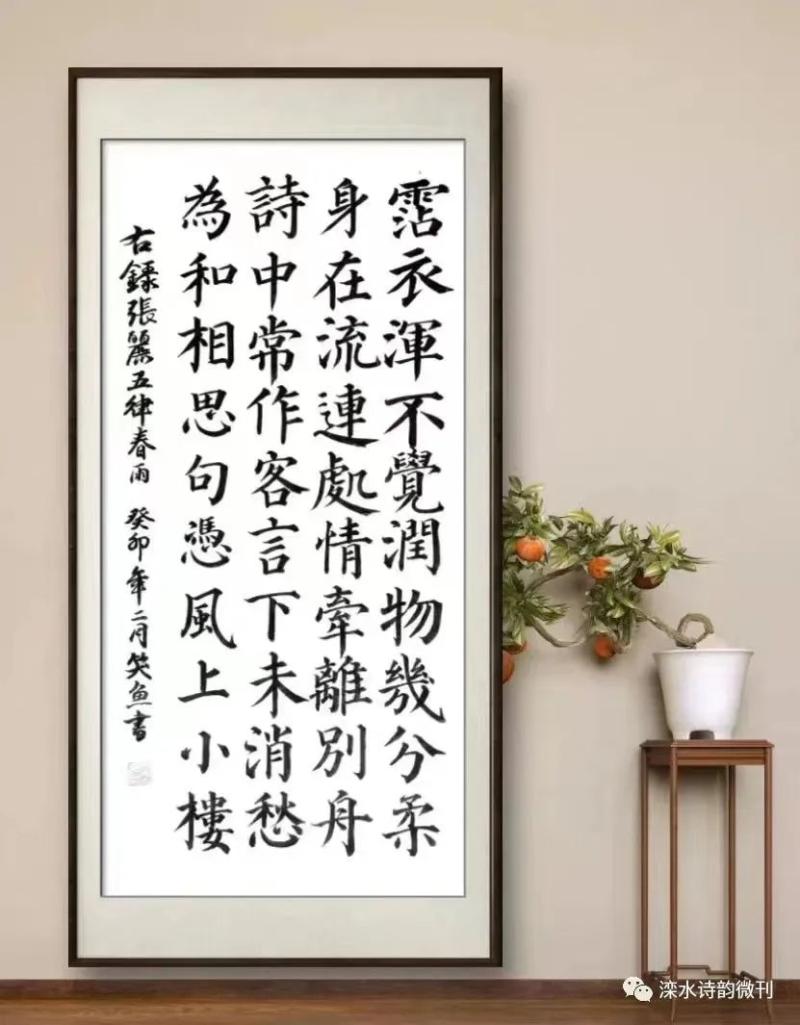 霑衣渾不覺潤物幾分柔
身在流連處情牽離別舟
詩中常作客言下未消愁
為和相思句憑風上小樓
右録張麗五律春雨 癸卯年二月笑魚書
滦水诗韵微刊